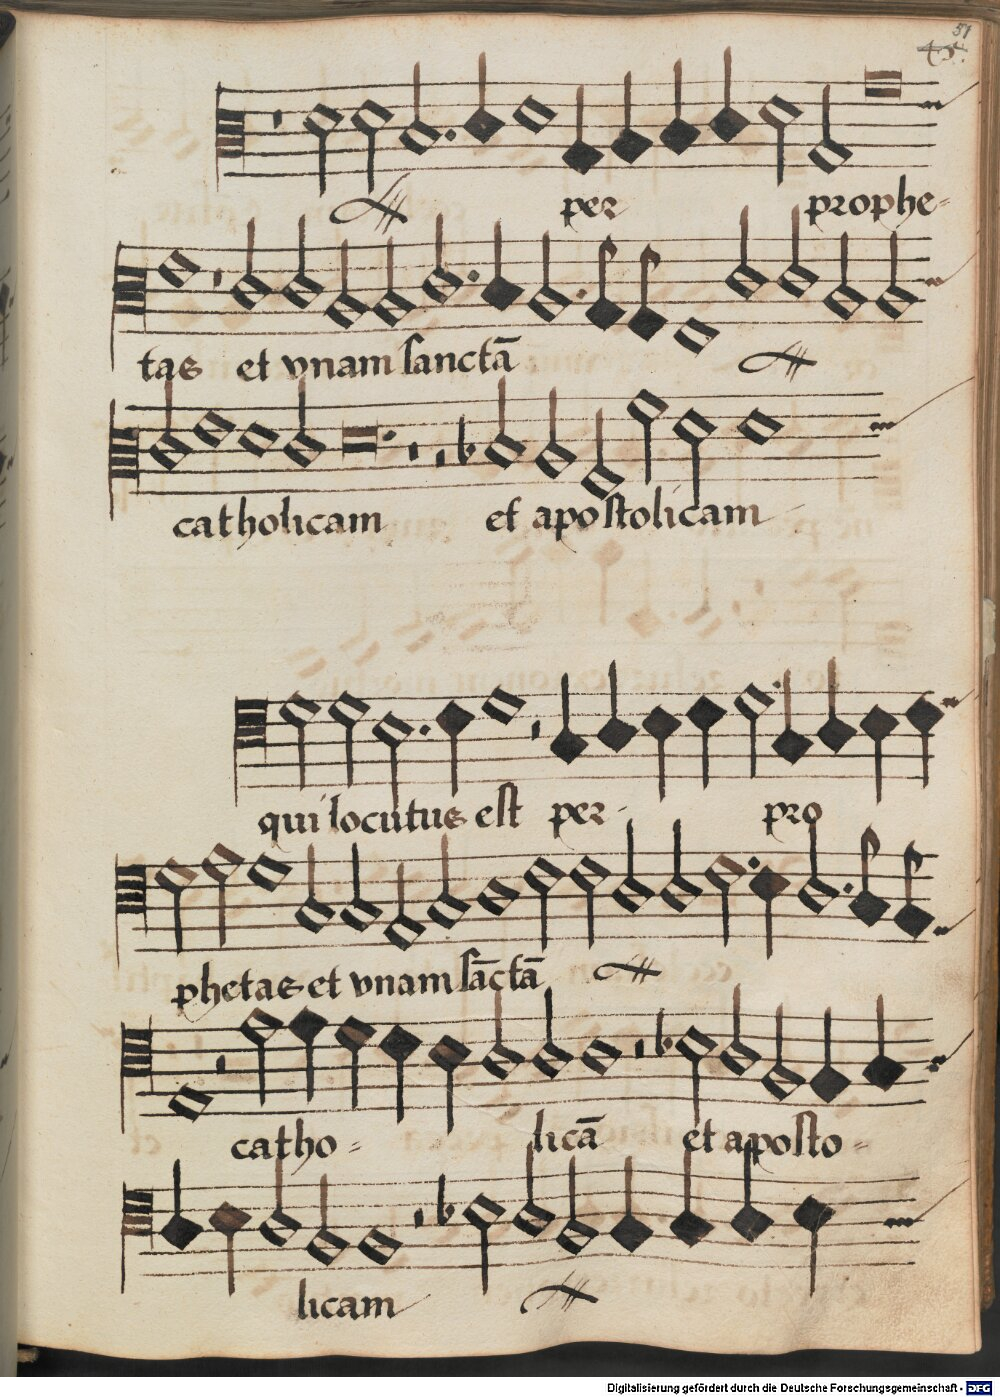 51
per prophe-
tas et vnam sanctā
catholicam et apostolicam
qui locutus est per- pro
phetas et vnam sāctā
catho- licā et aposto-
licam
Digitalisierung gefördert durch die Deutsche Forschungsgemeinschaft - DFG